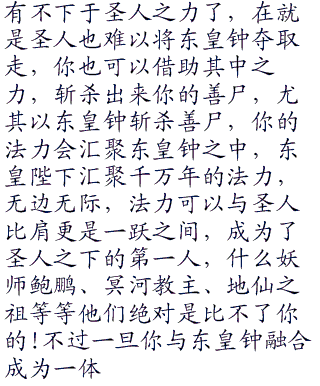 有不下于圣人之力了，在就
是圣人也难以将东皇钟夺取
走，你也可以借助其中之
力，斩杀出来你的善尸，尤
其以东皇钟斩杀善尸，你的
法力会汇聚东皇钟之中，东
皇陛下汇聚千万年的法力，
无边无际，法力可以与圣人
比肩更是一跃之间，成为了
圣人之下的第一人，什么妖
师鲍鹏、冥河教主、地仙之
祖等等他们绝对是比不了你
的!不过一旦你与东皇钟融合
成为一体